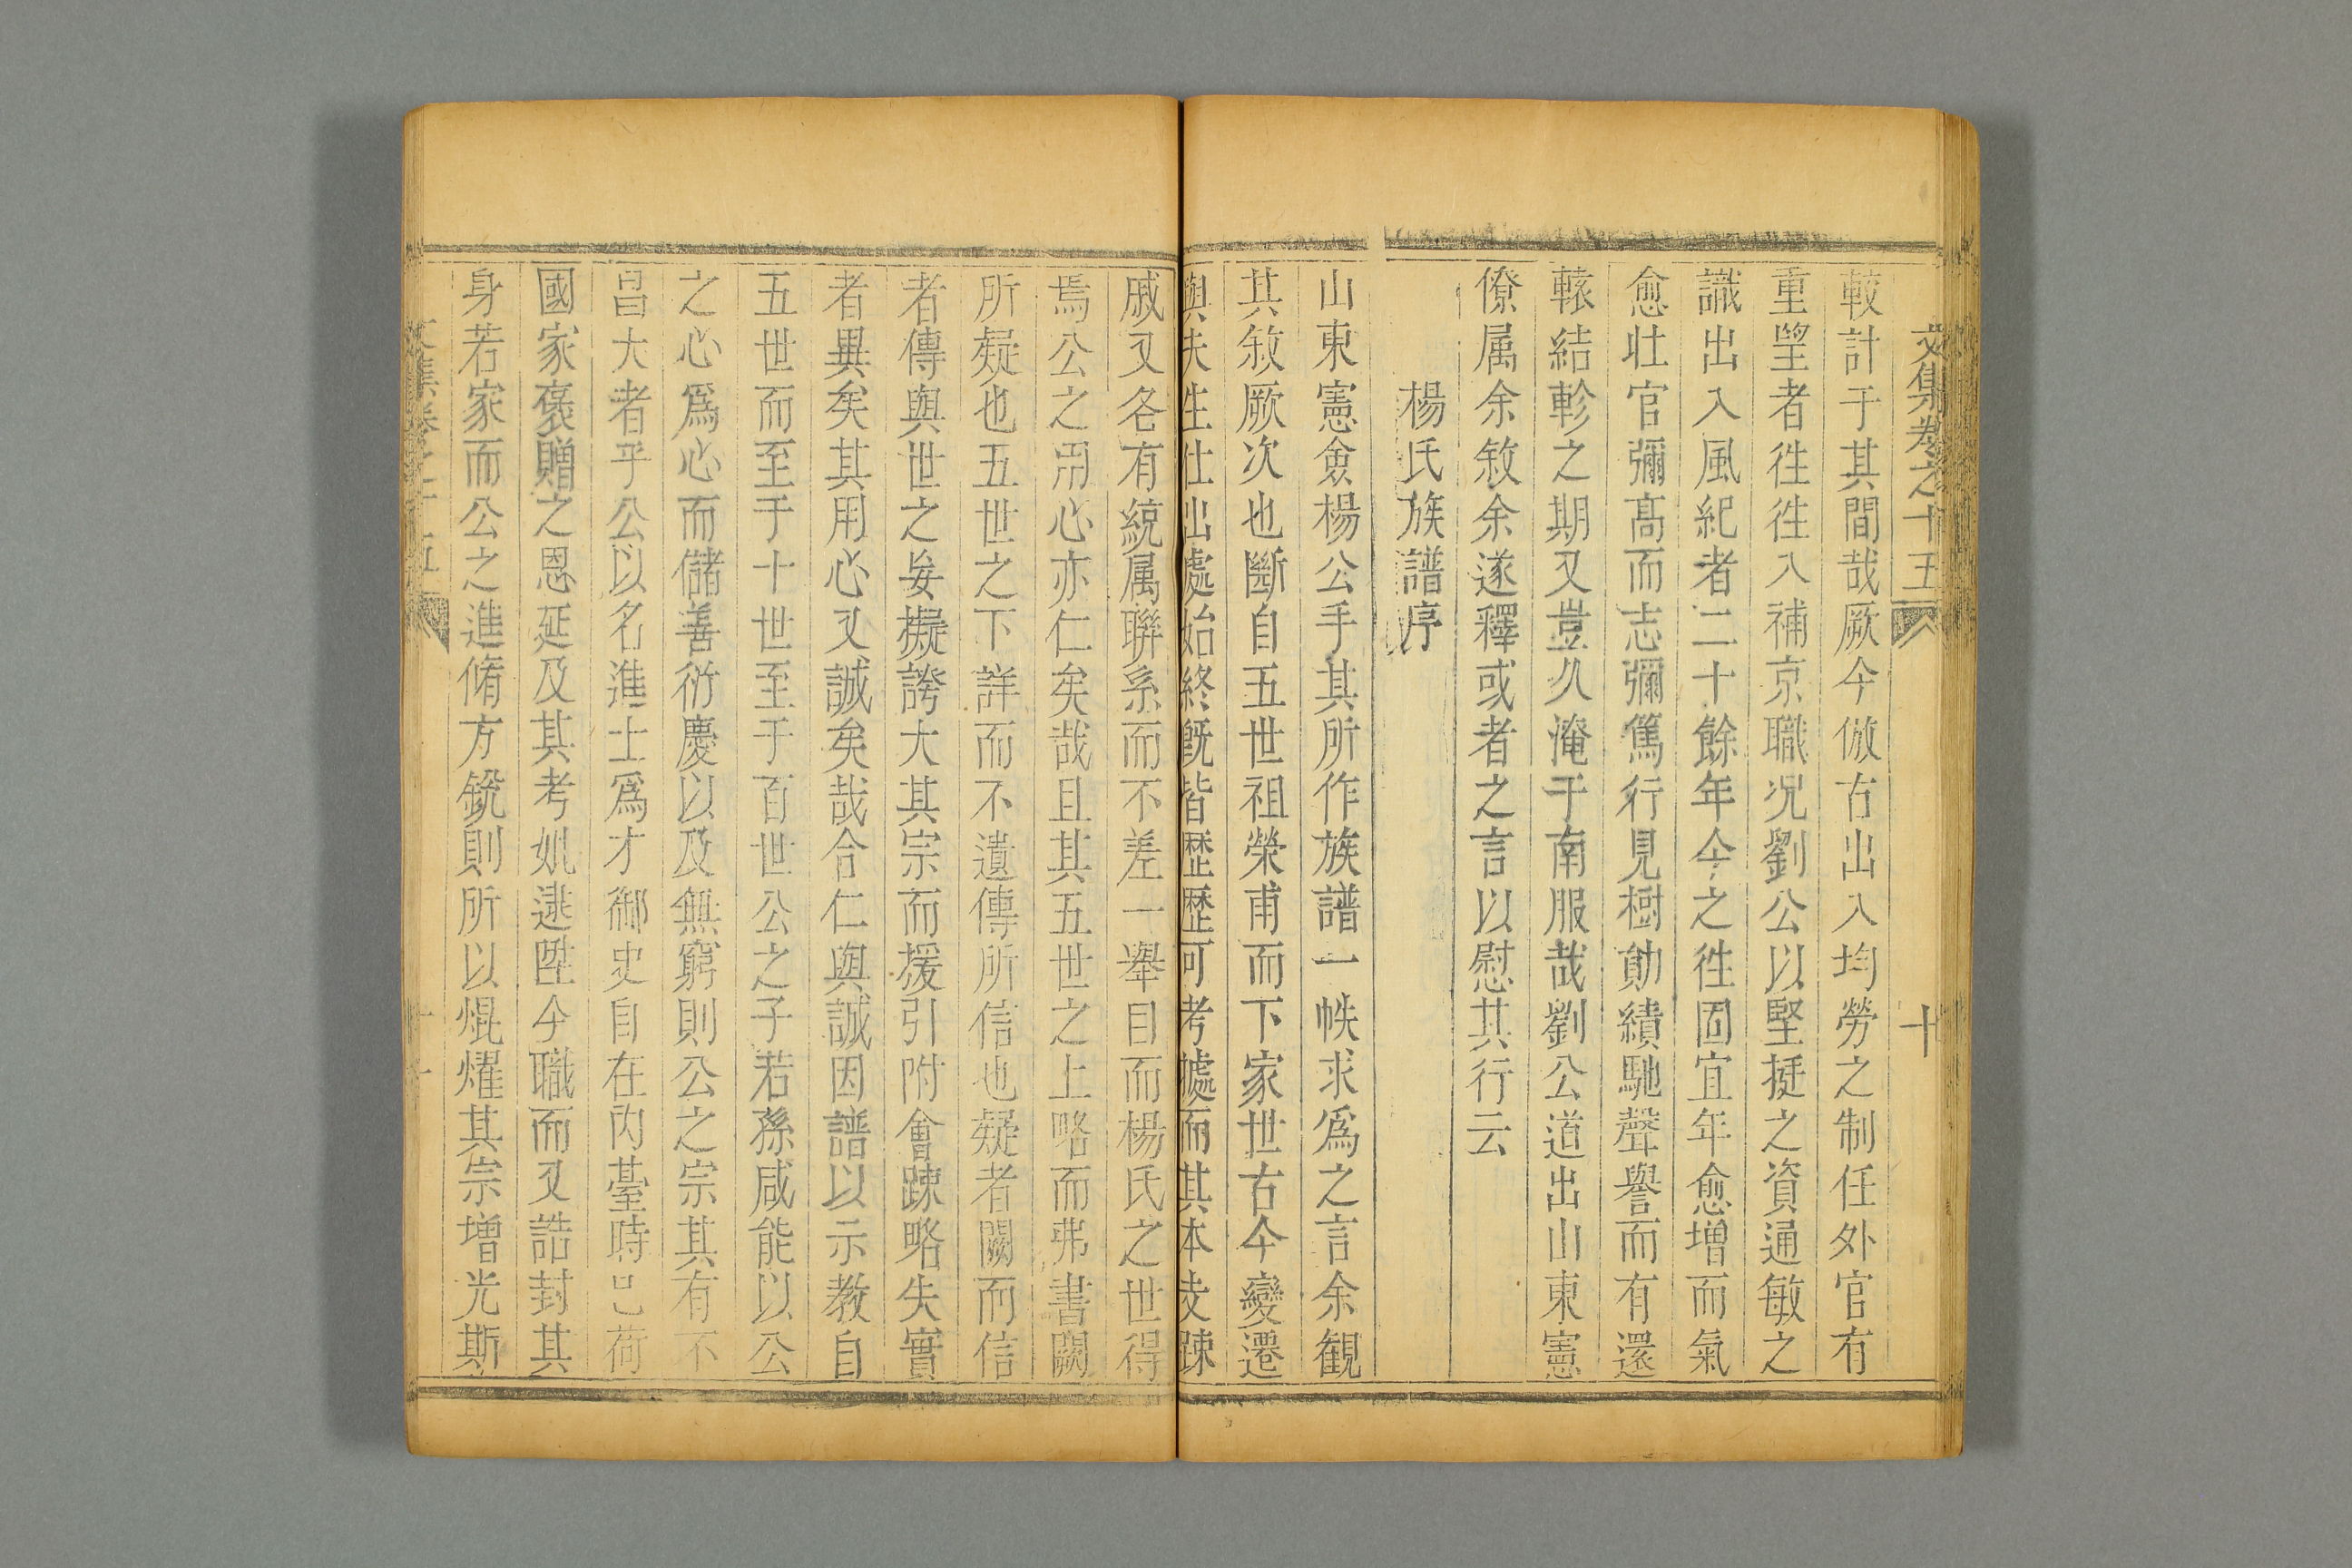 文集卷之十五
十
較計于其間哉厥今倣古出入均勞之制任外官有
重望者徃徃入補京職况劉公以堅挺之資通敏之
識出入風紀者二十餘年今之徃固宜年愈增而氣
愈壮官彌髙而志彌篤行見樹勛績馳聲譽而有還
轅結軫之期又豈久淹于南服哉劉公道出山東憲
僚属余敘余遂釋或者之言以慰其行云
楊氏族譜序
山東憲僉楊公手其所作族譜一帙求爲之言余観
其敘厥次也斷自五世祖榮甫而下家世古今變遷
與夫生仕出處始終旣皆歴歴可考據而其本支踈
戚又各有統属聨系而不差一舉目而楊氏之世得
焉公之用心亦仁矣哉且其五世之上略而弗書闕
所疑也五世之下詳而不遺傳所信也疑者闕而信
者傳與世之妄擬誇大其宗而援引附會踈略失實
者異矣其用心又誠矣哉合仁與誠因譜以示教自
五世而至于十世至于百世公之子若孫咸能以公
之心爲心而儲善衍慶以及無窮則公之宗其有不
昌大者乎公以名進士爲才御史自在内臺時已荷
國家褒贈之恩延及其考妣逮陞今職而又誥封其
身若家而公之進脩方銳則所以焜燿其宗增光斯
文集卷之十五
十一